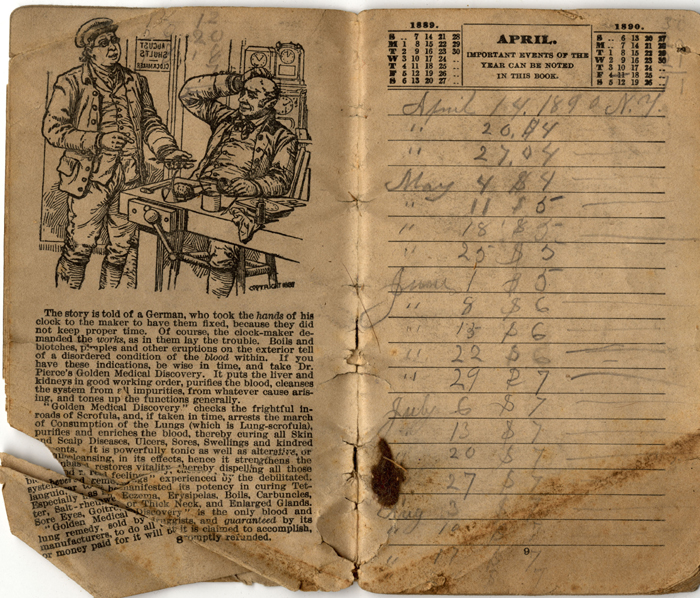 15 12
20
AUGUST
SHULTS
CLOCKMAKER
COPYRIGHT
The story is told of a German, who took the hands of his
clock to the maker to have them fixed, because they did
not keep proper time. Of course, the clock-maker de-
manded the works, as in them lay the trouble. Boils and
blotches, pimples and other eruptions on the exterior tell
of a disordered condition of the blood within. If you
have these indications, be wise in time, and take Dr.
Pierce's Golden Medical Discovery. It puts the liver and
kidneys in good working order, purifies the blood, cleanses
the system from all impurities, from whatever cause aris-
ing, and tones up the functions generally.
"Golden Medical Discovery" checks the frightful in-
roads of Scrofula, and, if taken in time, arrests the march
of Consumption of the Lungs (which is Lung-scrofula),
purifies and enriches the blood, thereby curing all Skin
and Scalp Diseases, Ulcers, Sores, Swellings and kindred
It is powerfully tonic as well as alterative, or
cleansing, in its effects, hence it strengthens the
restores vitality, thereby dispelling all those
feelings" experienced by the debilitated.
manifested its potency in curing Tet-
ter, Salt-rheum, Eczema, Erysipelas, Boils, Carbuncles,
Sore Eyes, Goitre, or Thick Neck, and Enlarged Glands.
"Golden Medical Discovery" is the only blood and
lung remedy, sold by druggists, and guaranteed by its
manufacturers, to do all it is claimed to accomplish,
or money paid for it will be promptly refunded.
8
1889.
S .. 7 14 21 28
M 1 8 15 22 29
T 2 9 16 23 30
W 3 10 17 24 ..
T 4 11 18 25 ..
F 5 12 19 26 ..
S 6 13 20 27 ..
APRIL.
IMPORTANT EVENTS OF THE
YEAR CAN BE NOTED
IN THIS BOOK.
1890.
S .. 6 13 20 27
M .. 7 14 21 28
T 1 8 15 22 29
W 2 9 16 23 30
T 3 10 17 24 ..
F 4 11 18 25 ..
S 5 12 19 26 ..
April 14, 1890 N.Y.
" 20, $4
" 27, $4
May 4 $4
" 11 $5
" 18 $5
" 25 $5
June 1 $5
" 8 $6
" 15 $6
" 22 $6
" 29 $7
July 6 $7
" 13 $7
" 20 $7
" 27
Aug 3
" 10
" 17 $7
9